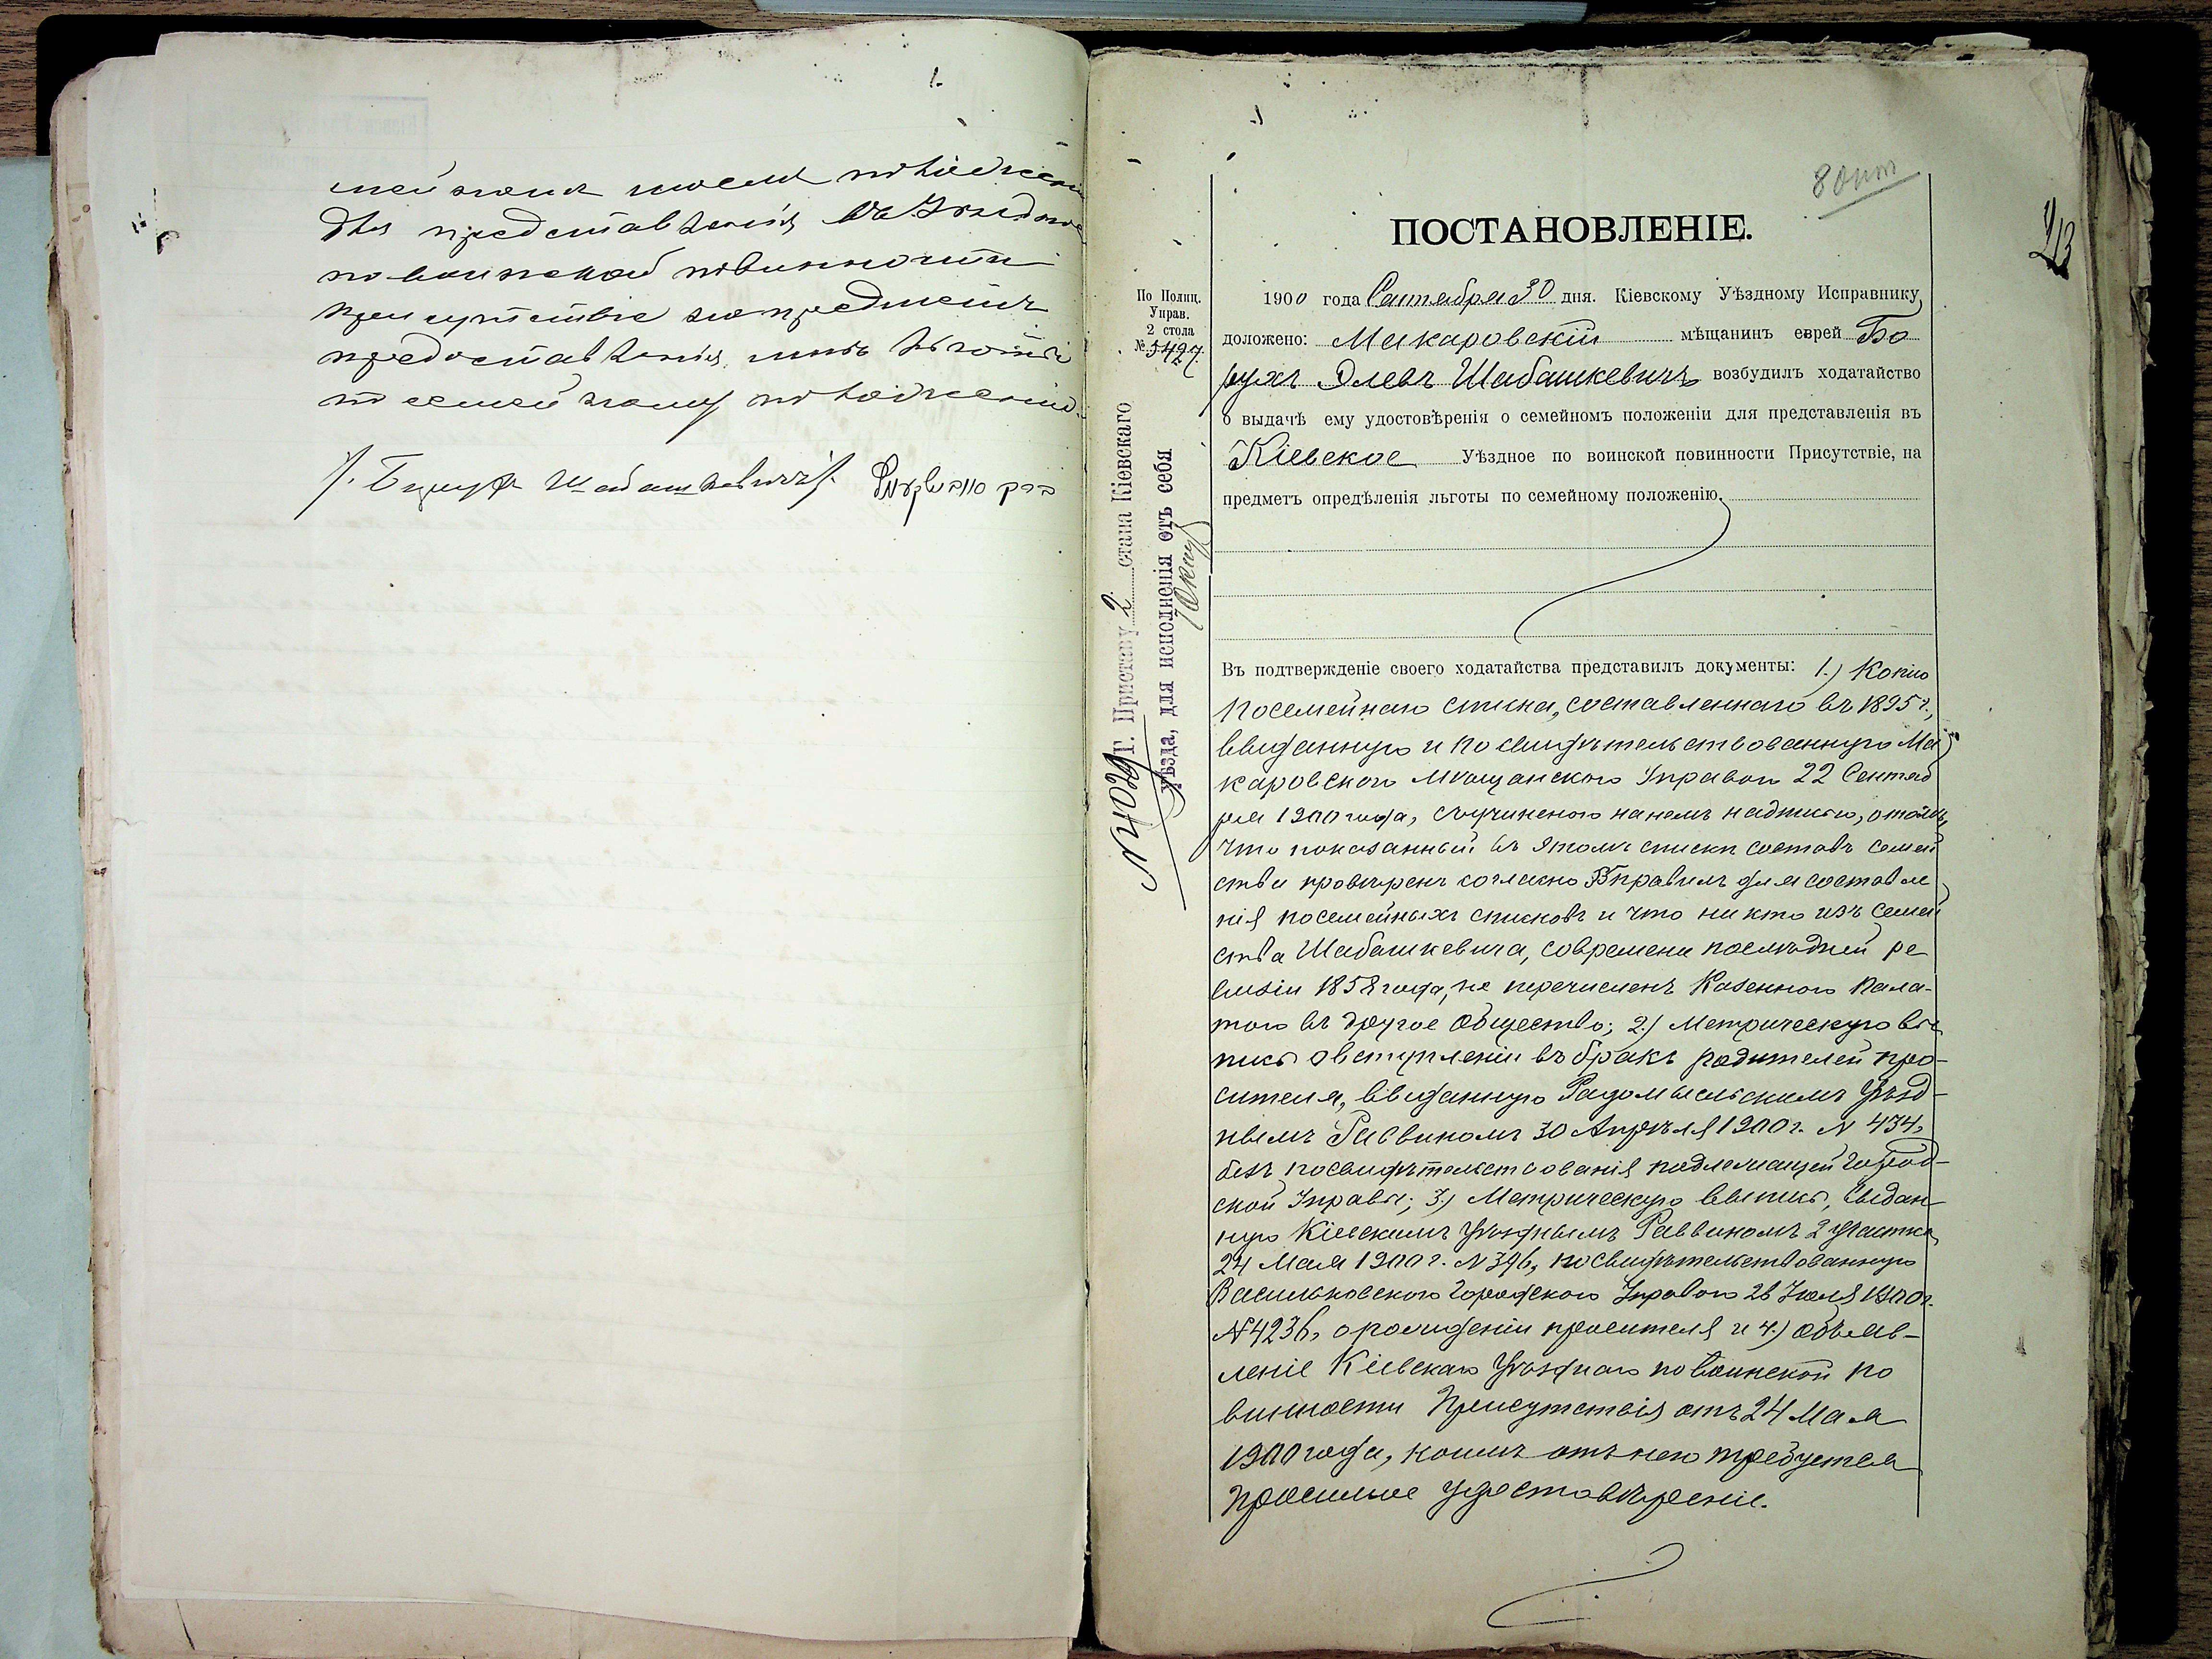 мейномъ моемъ положеніи
для представленія въ Уѣздное
по воинской повинности
присутствіе на предметъ
предоставленія мнѣ льготы
по семейному положенію.
/. Борухъ Шабашкевичъ /.
8 Окт
213
ПОСТАНОВЛЕНІЕ.
По Полиц.
Управ.
2 стола
№ 5427.
1900 года Сентября 30 дня. Кіевскому Уѣздному Исправнику
доложено: Макаровскій мѣщанинъ еврей Бо
рухъ Элевъ Шабашкевичъ возбудилъ ходатайство
о выдачѣ ему удостовѣренія о семейномъ положеніи для представленія въ
Кіевское Уѣздное по воинской повинности Присутствіе, на
предметъ опредѣленія льготы по семейному положенію.
Г. Приставу 2 стана Кіевскаго
уѣзда, для исполненія отъ себя
Въ подтвержденіе своего ходатайства представилъ документы: 1.) Копію
посемейнаго списка, составленнаго въ 1895 г.,
выданную и посвидѣтельствованную Ма
каровскою Мѣщанскою Управою 22 Сентяб
ря 1900 года, съ учиненою на немъ надписью, о томъ,
что показанный въ этомъ списке составъ семей
ства провѣренъ согласно правилъ для составле
нія посемейныхъ списковъ и что никто изъ семей
ства Шабашкевича, со времени послѣдней ре
визіи 1858 года, не перечисленъ Казенною Пала-
тою въ другое общество; 2.) Метрическую вы
пись о вступленіи въ бракъ родителей про-
сителя, выданную Радомысльскимъ Уѣзд-
нымъ Раввиномъ 30 Апрѣля 1900 г. N 434,
безъ посвидѣтельствованія подлежащей Город-
ской Управы; 3.) Метрическую выпись, выдан
ную Кіевскимъ Уѣзднымъ Раввиномъ 2 участка
24 Мая 1900 г. N 396, посвидѣтельствованную
Васильковскою Городскою Управою 26 Іюля 1900 г.
N 4236, о рожденіи просителя и 4.) объяв-
леніе Кіевскаго Уѣзднаго по воинской по
винности Присутствія отъ 24 Мая
1900 года, коимъ отъ него требуется
просимое удостовѣреніе.